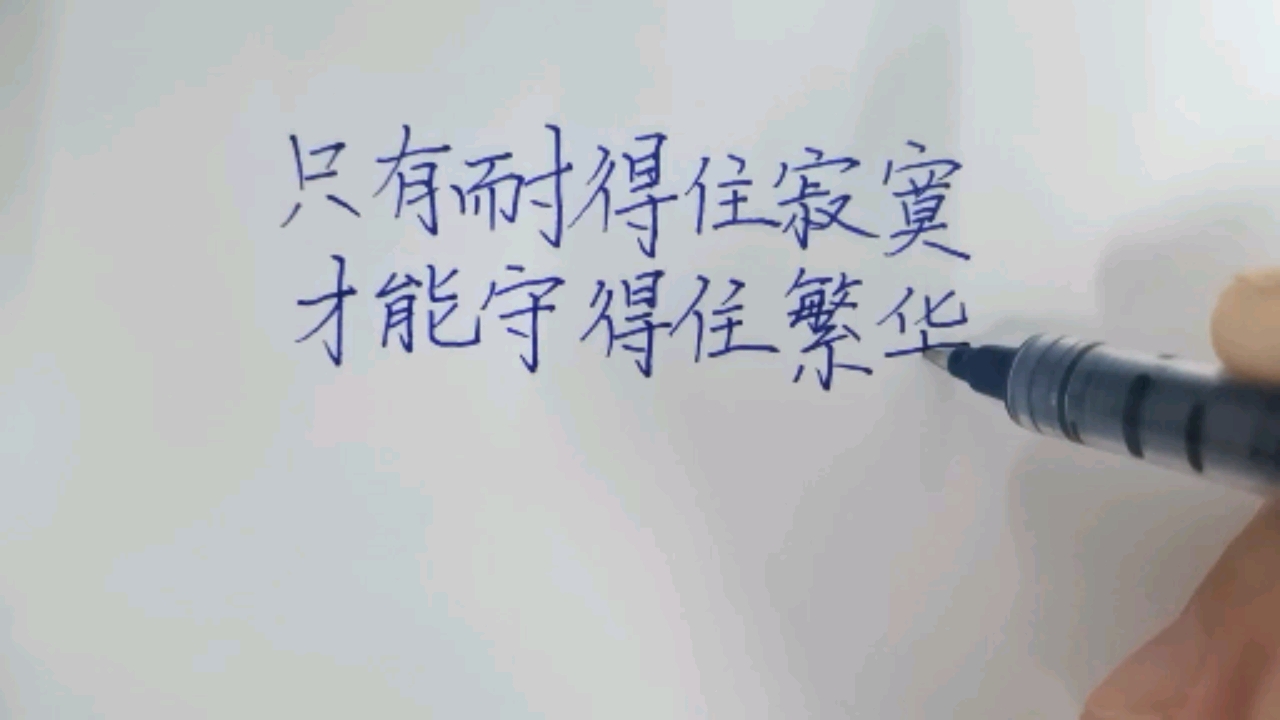 只有耐得住寂寞
才能守得住繁华